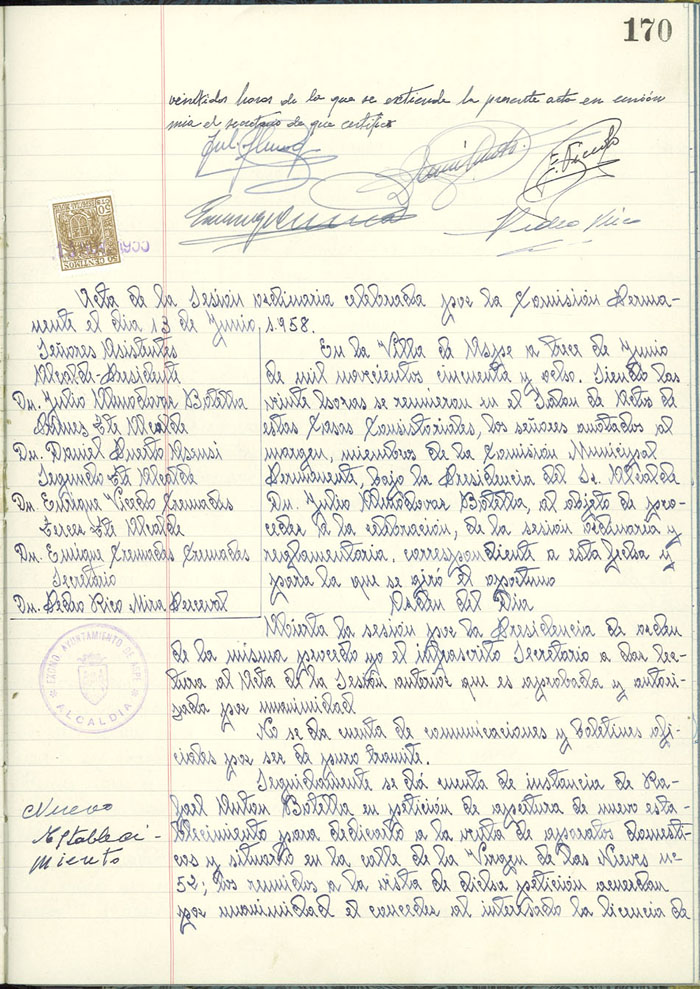 170
veintidos horas de la que se extiende la presente acta en cuanto
mia el secretario de que certifico
E. Vicedo
Pedro Rico
50 CENTIMOS
Acta de la Sesión ordinaria celebrada por la Comisión Perma-
nente el día 13 de Junio 1.958.
Señores Asistentes
Alcalde-Presidente
Dn. Julio Almodovar Botella
Primer Tte Alcalde
Dn. Daniel Puerto Asensi
Segundo Tte Alcalde
Dn. Enrique Vicedo Cremades
Tercer Tte Alcalde
Dn. Enrique Cremades Cremades
Secretario
Dn. Pedro Rico Mira Perceval
En la Villa de Aspe a trece de Junio
de mil novecientos cincuenta y ocho. Siendo las
veinte horas se reunieron en el Salon de Actos de
estas Casas Consistoriales, los señores anotados al
margen, miembros de la Comisión Municipal
Permanente, bajo la Presidencia del Sr. Alcalde
Dn. Julio Almodovar Botella, al objeto de pro-
ceder a la celebración, de la sesión ordinaria y
reglamentaria, correspondiente a esta fecha y
para la que se giró el oportuno
Orden del Dia
Abierta la sesión por la Presidencia de orden
de la misma procedo yo el infrascrito Secretario a dar lec-
tura al Acta de la Sesión anterior que es aprobada y autori-
zada por unanimidad
No se da cuenta de comunicaciones y boletines ofi-
ciales por ser de puro tramite.
EXCMO. AYUNTAMIENTO DE ASPE
ALCALDIA
Nuevo
Estableci-
miento
Seguidamente se dá cuenta de instancia de Ra-
fael Anton Botella en petición de apertura de nuevo esta-
blecimiento para dedicarlo a la venta de aparatos domesti-
cos y situarlo en la calle de la Virgen de las Nieves nº
52; los reunidos a la vista de dicha petición acuerdan
por unanimidad el conceder al interesado la licencia de